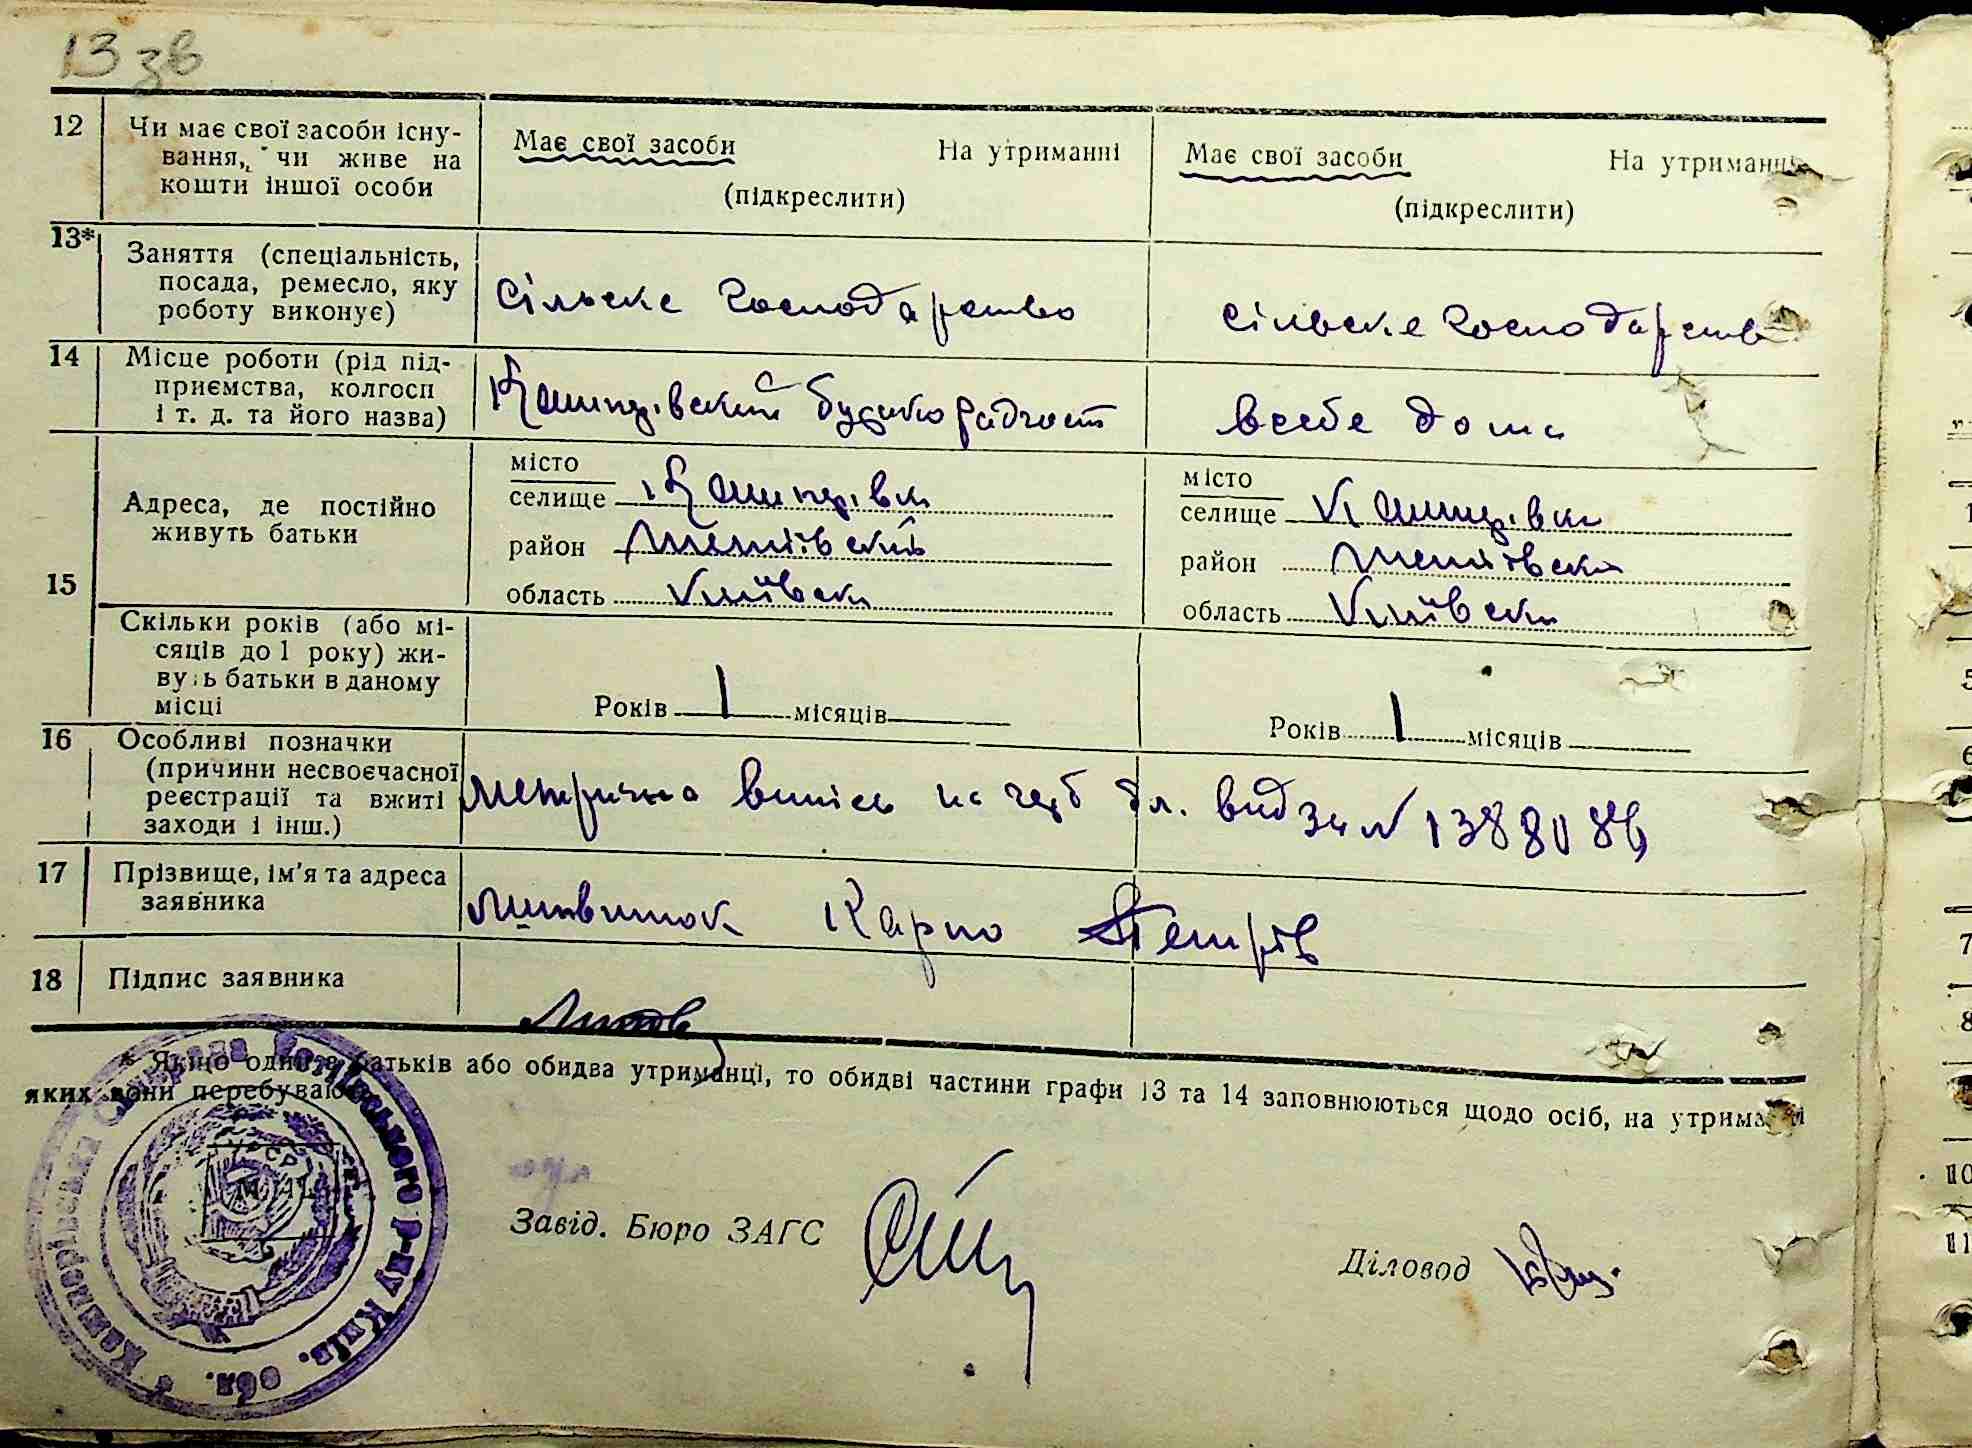 13 зв
12 Чи має свої засоби існу-
вання, чи живе на
кошти іншої особи
Має свої засоби На утриманні
(підкреслити)
Має свої засоби На утриманні
(підкреслити)
13* Заняття (спеціальність,
посада, ремесло, яку
роботу виконує)
Сільске господарство
сільске господарств
14 Місце роботи (рід під-
приємства, колгосп
і т. д. та його назва)
всебе дома
15 Адреса, де постійно
живуть батьки
місто
селище Кашперівка
район Тетіївский
область Київска
місто
селище Кашперівка
район Тетіївски
область Київска
Скільки років (або мі-
сяців до 1 року) жи-
вуть батьки в даному
місці
Років 1 місяців
Років 1 місяців
16 Особливі позначки
(причини несвоєчасної
реєстрації та вжиті
заходи і інш.)
метрична випись на герб бл. вид за №
17 Прізвище, ім'я та адреса
заявника
Литвинюк Карпо Петрів
18 Підпис заявника
Литв
* Якщо один з батьків або обидва утриманці, то обидві частини графи 13 та 14 заповнюються щодо осіб, на утриманні
яких вони перебувають
Завід. Бюро ЗАГС
Діловод
Кашперівська Сільрада Тетіївського р-ну Київ. обл.
УССР